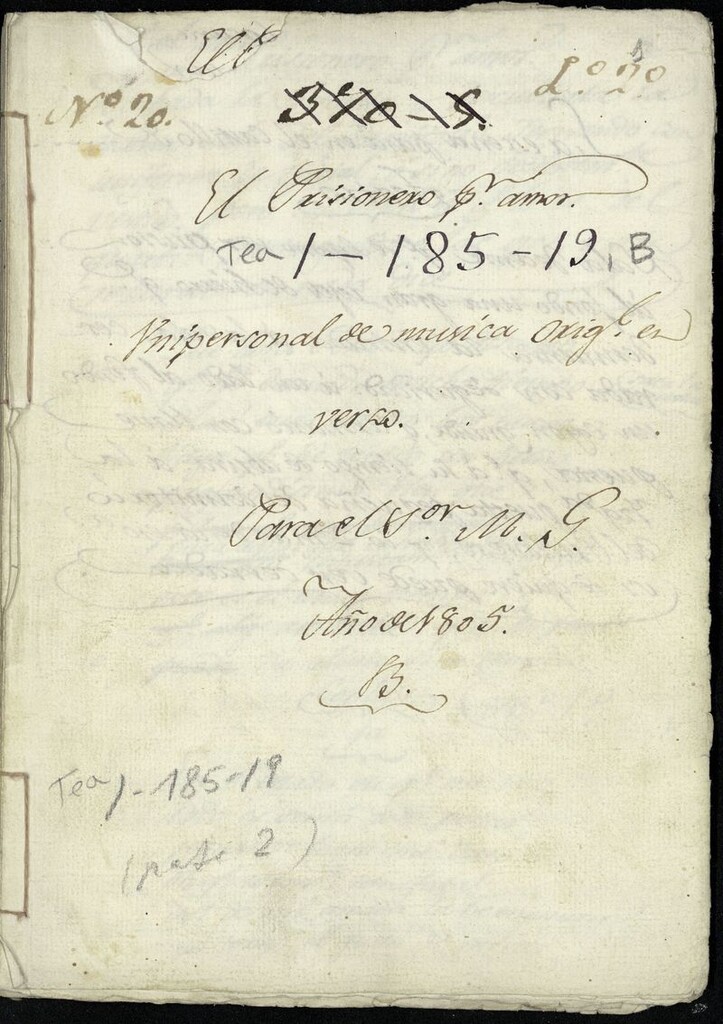 El P
Nº 20.
Lº 2º
El Pricionero p.r amor.
Tea 1-185-19, B
Vnipersonal de musica orig.l en
verso.
Para el S.or M. G.
Año de 1805.
B.
Tea 1-185-19